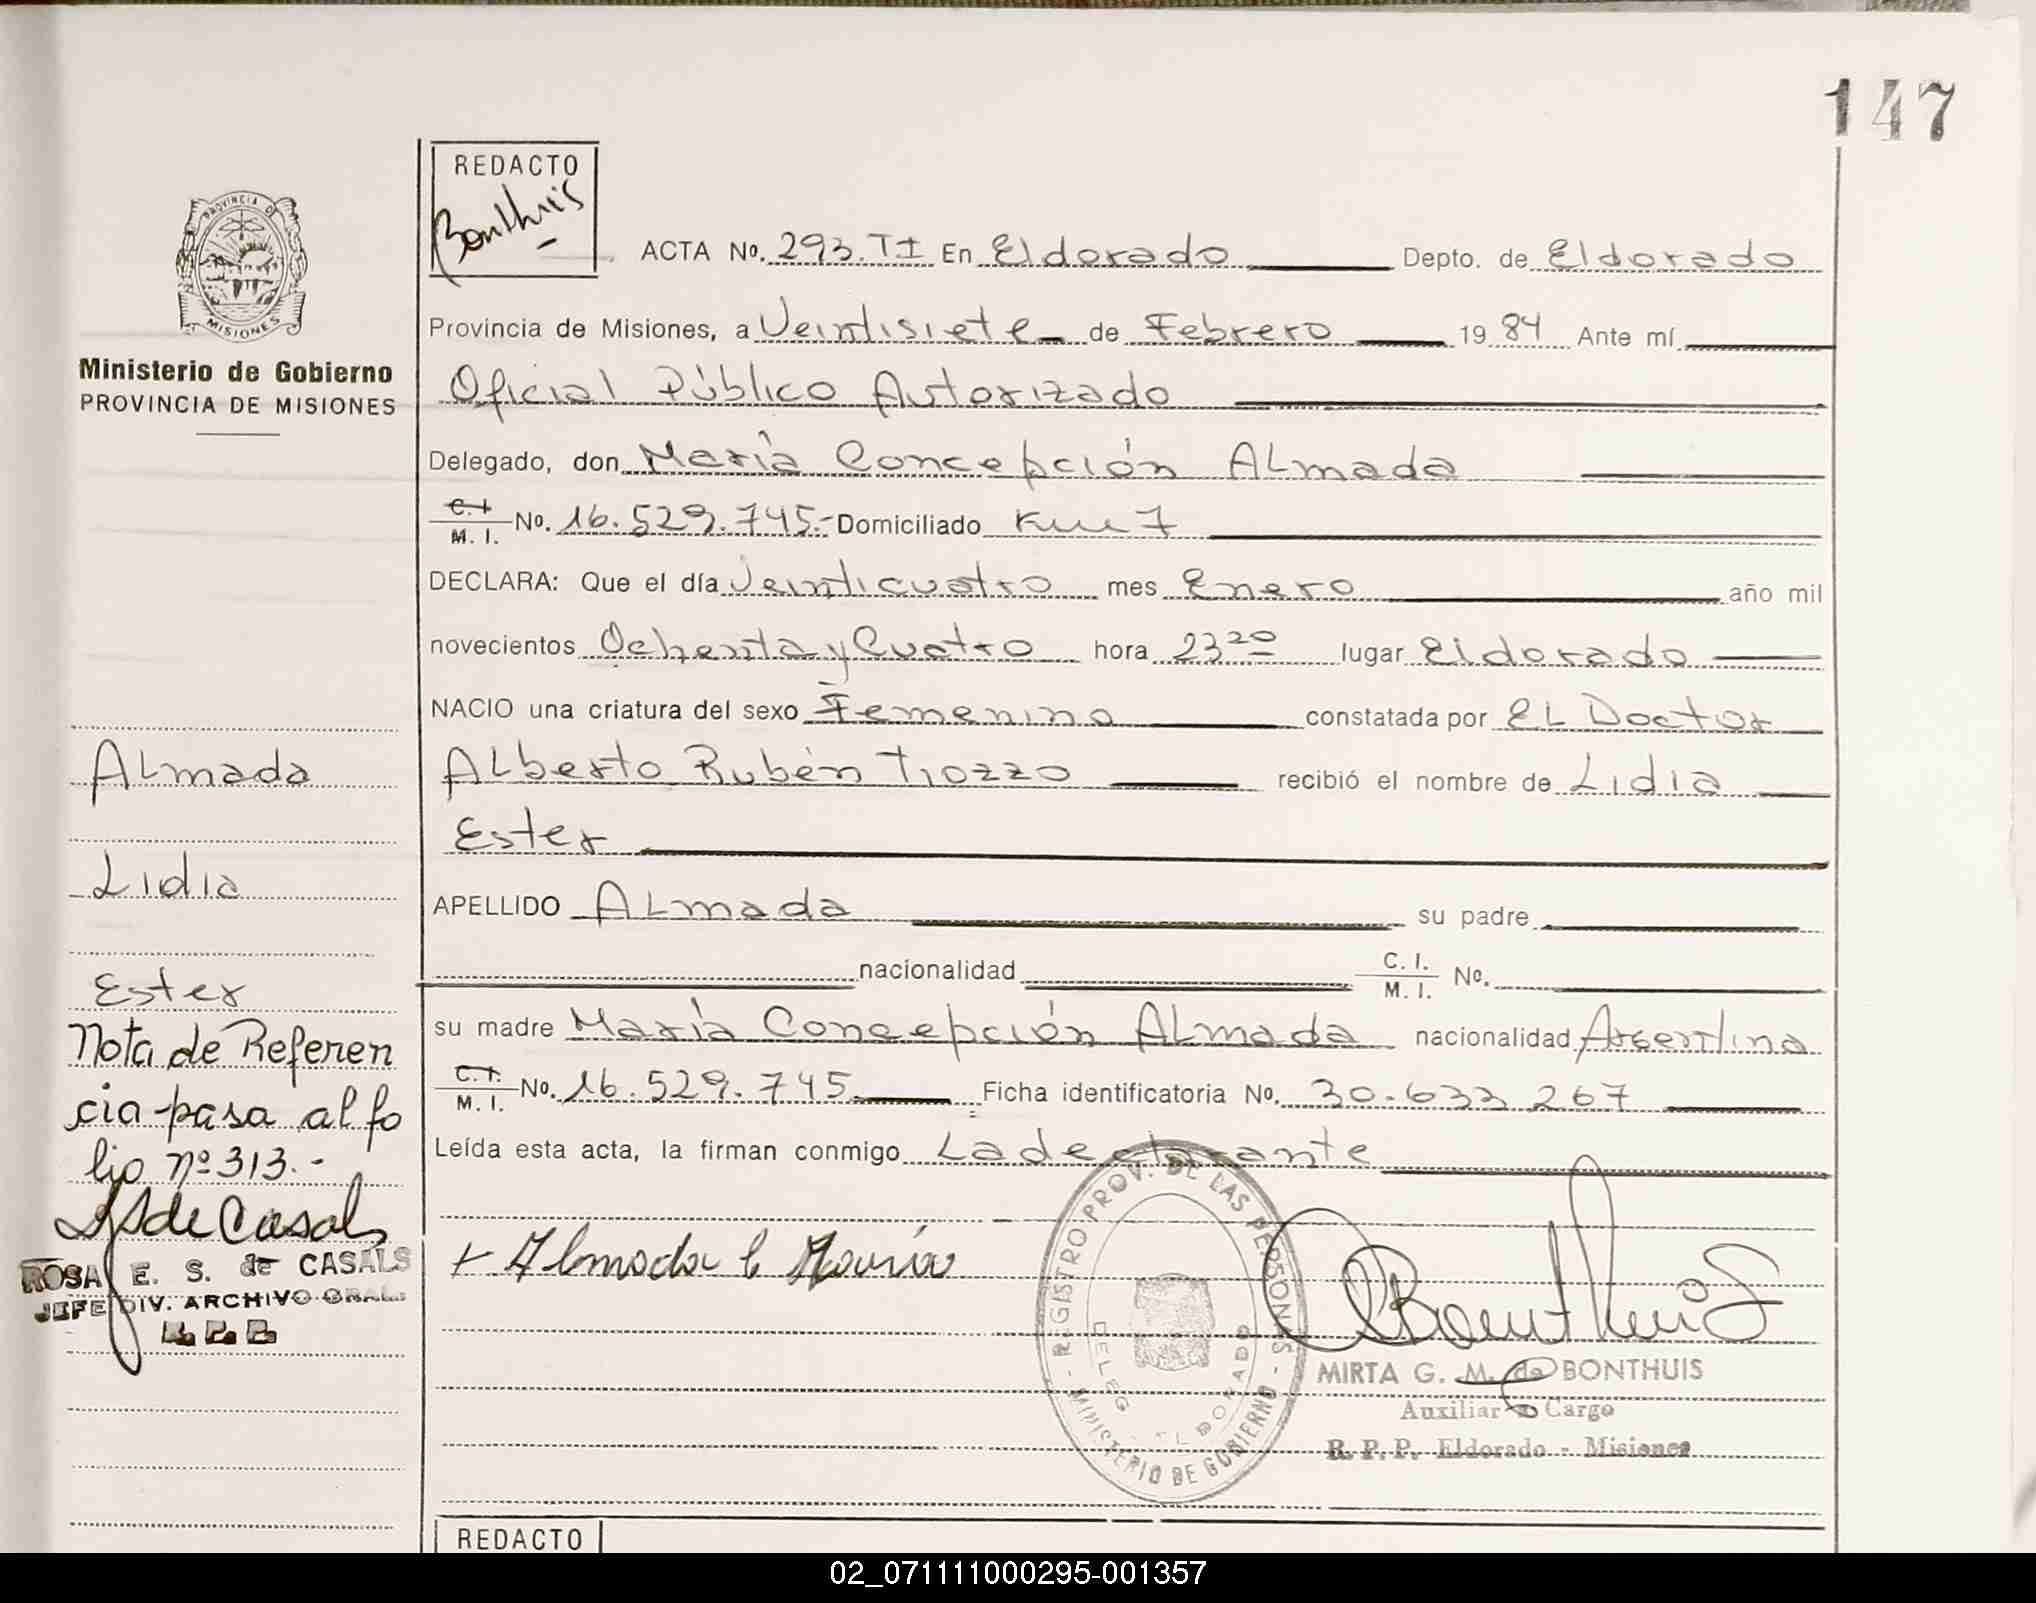 147
REDACTO
Bonthuis
ACTA Nº. 293. TI En Eldorado Depto. de Eldorado
PROVINCIA DE
MISIONES
Ministerio de Gobierno
PROVINCIA DE MISIONES
Provincia de Misiones, a Veintisiete de Febrero 19 84 Ante mí
Oficial Público Autorizado
Delegado, don María Concepción Almada
C. I. M. I. Nº. 16.529.745.- Domiciliado Km 7
DECLARA: Que el día Veinticuatro mes Enero año mil
novecientos Ochenta y Cuatro hora 23 20 lugar Eldorado
NACIO una criatura del sexo Femenino constatada por El Doctor
Alberto Rubén Tiozzo recibió el nombre de Lidia
Ester
APELLIDO Almada su padre
nacionalidad C. I. M. I. Nº.
su madre María Concepción Almada nacionalidad Argentina
C. I. M. I. Nº. 16.529.745 Ficha identificatoria Nº. 30.633.267
Leída esta acta, la firman conmigo La declarante
Almada
Lidia
Ester
Nota de Referen
cia pasa al fo
lio nº 313.-
S de Casals
ROSA E. S. de CASALS
JEFE DIV. ARCHIVO GRAL.
+ Almada C María
REGISTRO PROV. DE LAS PERSONAS
MINISTERIO DE GOBIERNO
DELEG. ELDORADO
Bonthuis
MIRTA G. M. de BONTHUIS
Auxiliar a Cargo
R. P. P. Eldorado - Misiones
REDACTO
02_071111000295-001357